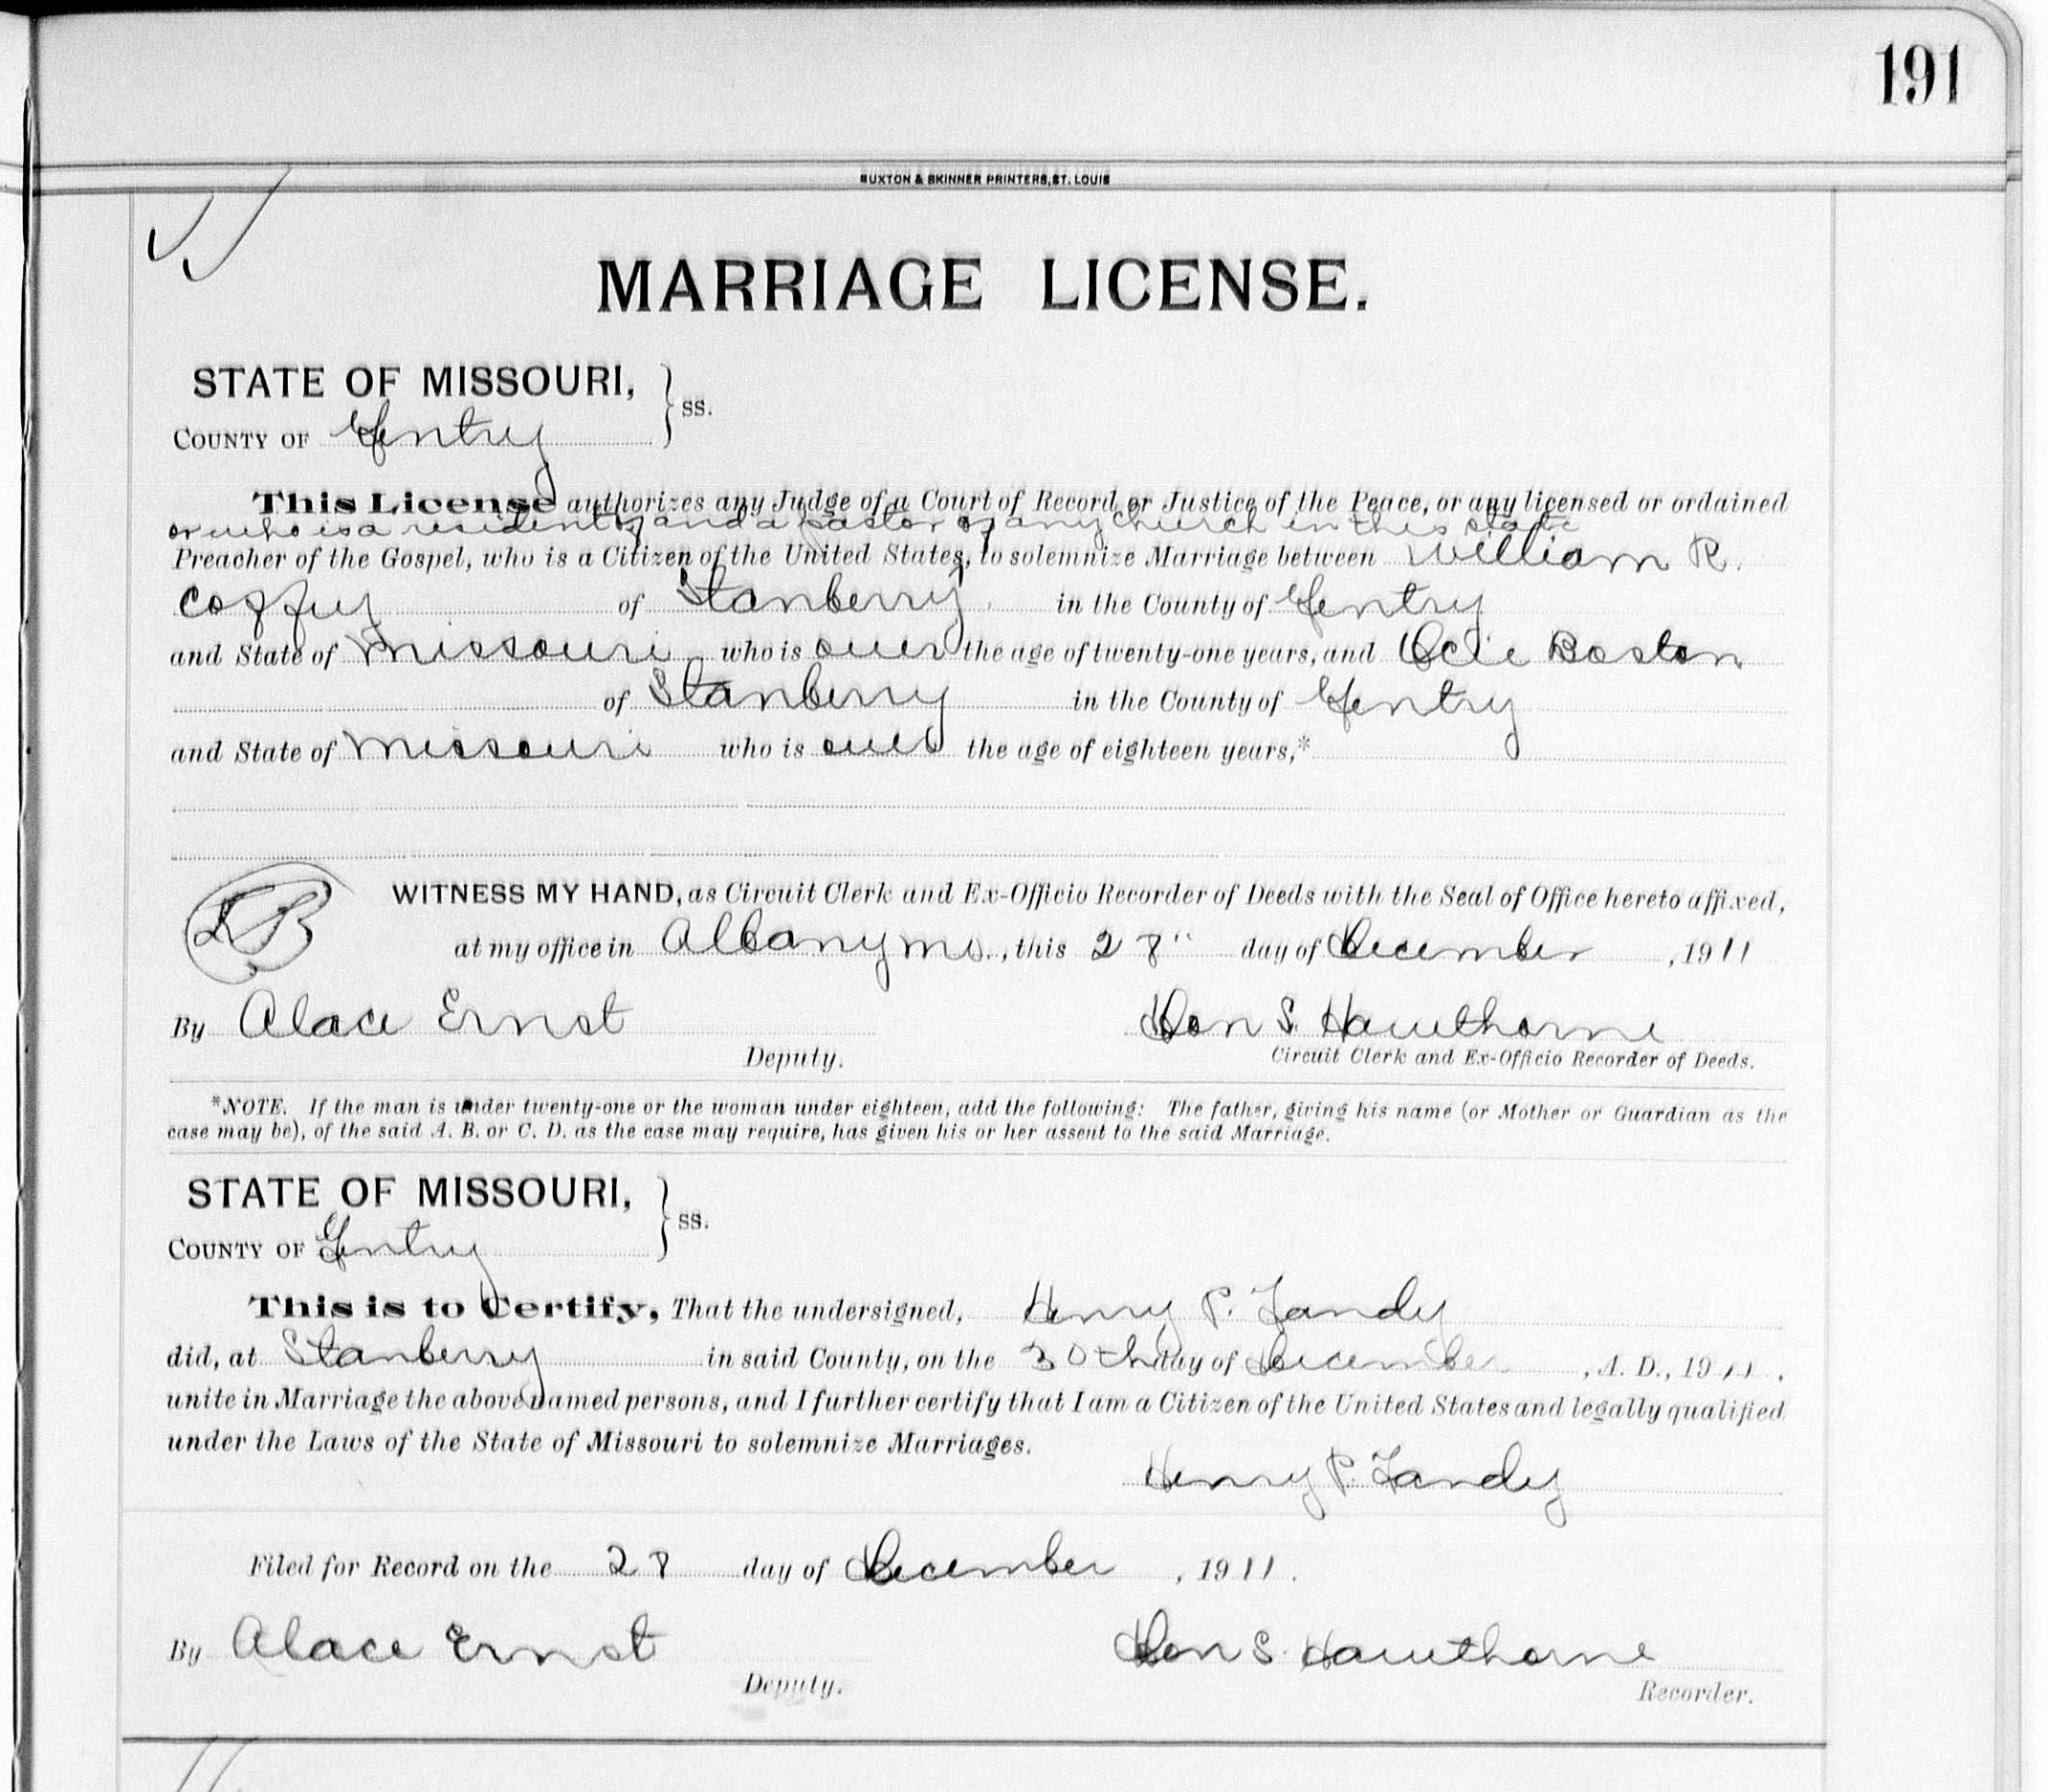 191
BUXTON & SKINNER PRINTERS, ST. LOUIS
MARRIAGE LICENSE.
STATE OF MISSOURI, } ss.
COUNTY OF Gentry
This License authorizes any Judge of a Court of Record or Justice of the Peace, or any licensed or ordained
or who is a resident of and a pastor of any church in this state
Preacher of the Gospel, who is a Citizen of the United States, to solemnize Marriage between William R.
Coffey of Stanberry in the County of Gentry
and State of Missouri who is over the age of twenty-one years, and Ocie Boston
of Stanberry in the County of Gentry
and State of Missouri who is over the age of eighteen years,*
WITNESS MY HAND, as Circuit Clerk and Ex-Officio Recorder of Deeds with the Seal of Office hereto affixed,
at my office in Albany Mo., this 28" day of December, 1911
By Alace Ernst Don S. Hawthorne
Deputy. Circuit Clerk and Ex-Officio Recorder of Deeds.
*NOTE. If the man is under twenty-one or the woman under eighteen, add the following: The father, giving his name (or Mother or Guardian as the
case may be), of the said A. B. or C. D. as the case may require, has given his or her assent to the said Marriage.
STATE OF MISSOURI, } ss.
COUNTY OF Gentry
This is to Certify, That the undersigned, Henry P. Tandy
did, at Stanberry in said County, on the 30th day of December, A. D., 1911,
unite in Marriage the above named persons, and I further certify that I am a Citizen of the United States and legally qualified
under the Laws of the State of Missouri to solemnize Marriages.
Henry P. Tandy
Filed for Record on the 28 day of December, 1911.
By Alace Ernst Don S. Hawthorne
Deputy. Recorder.